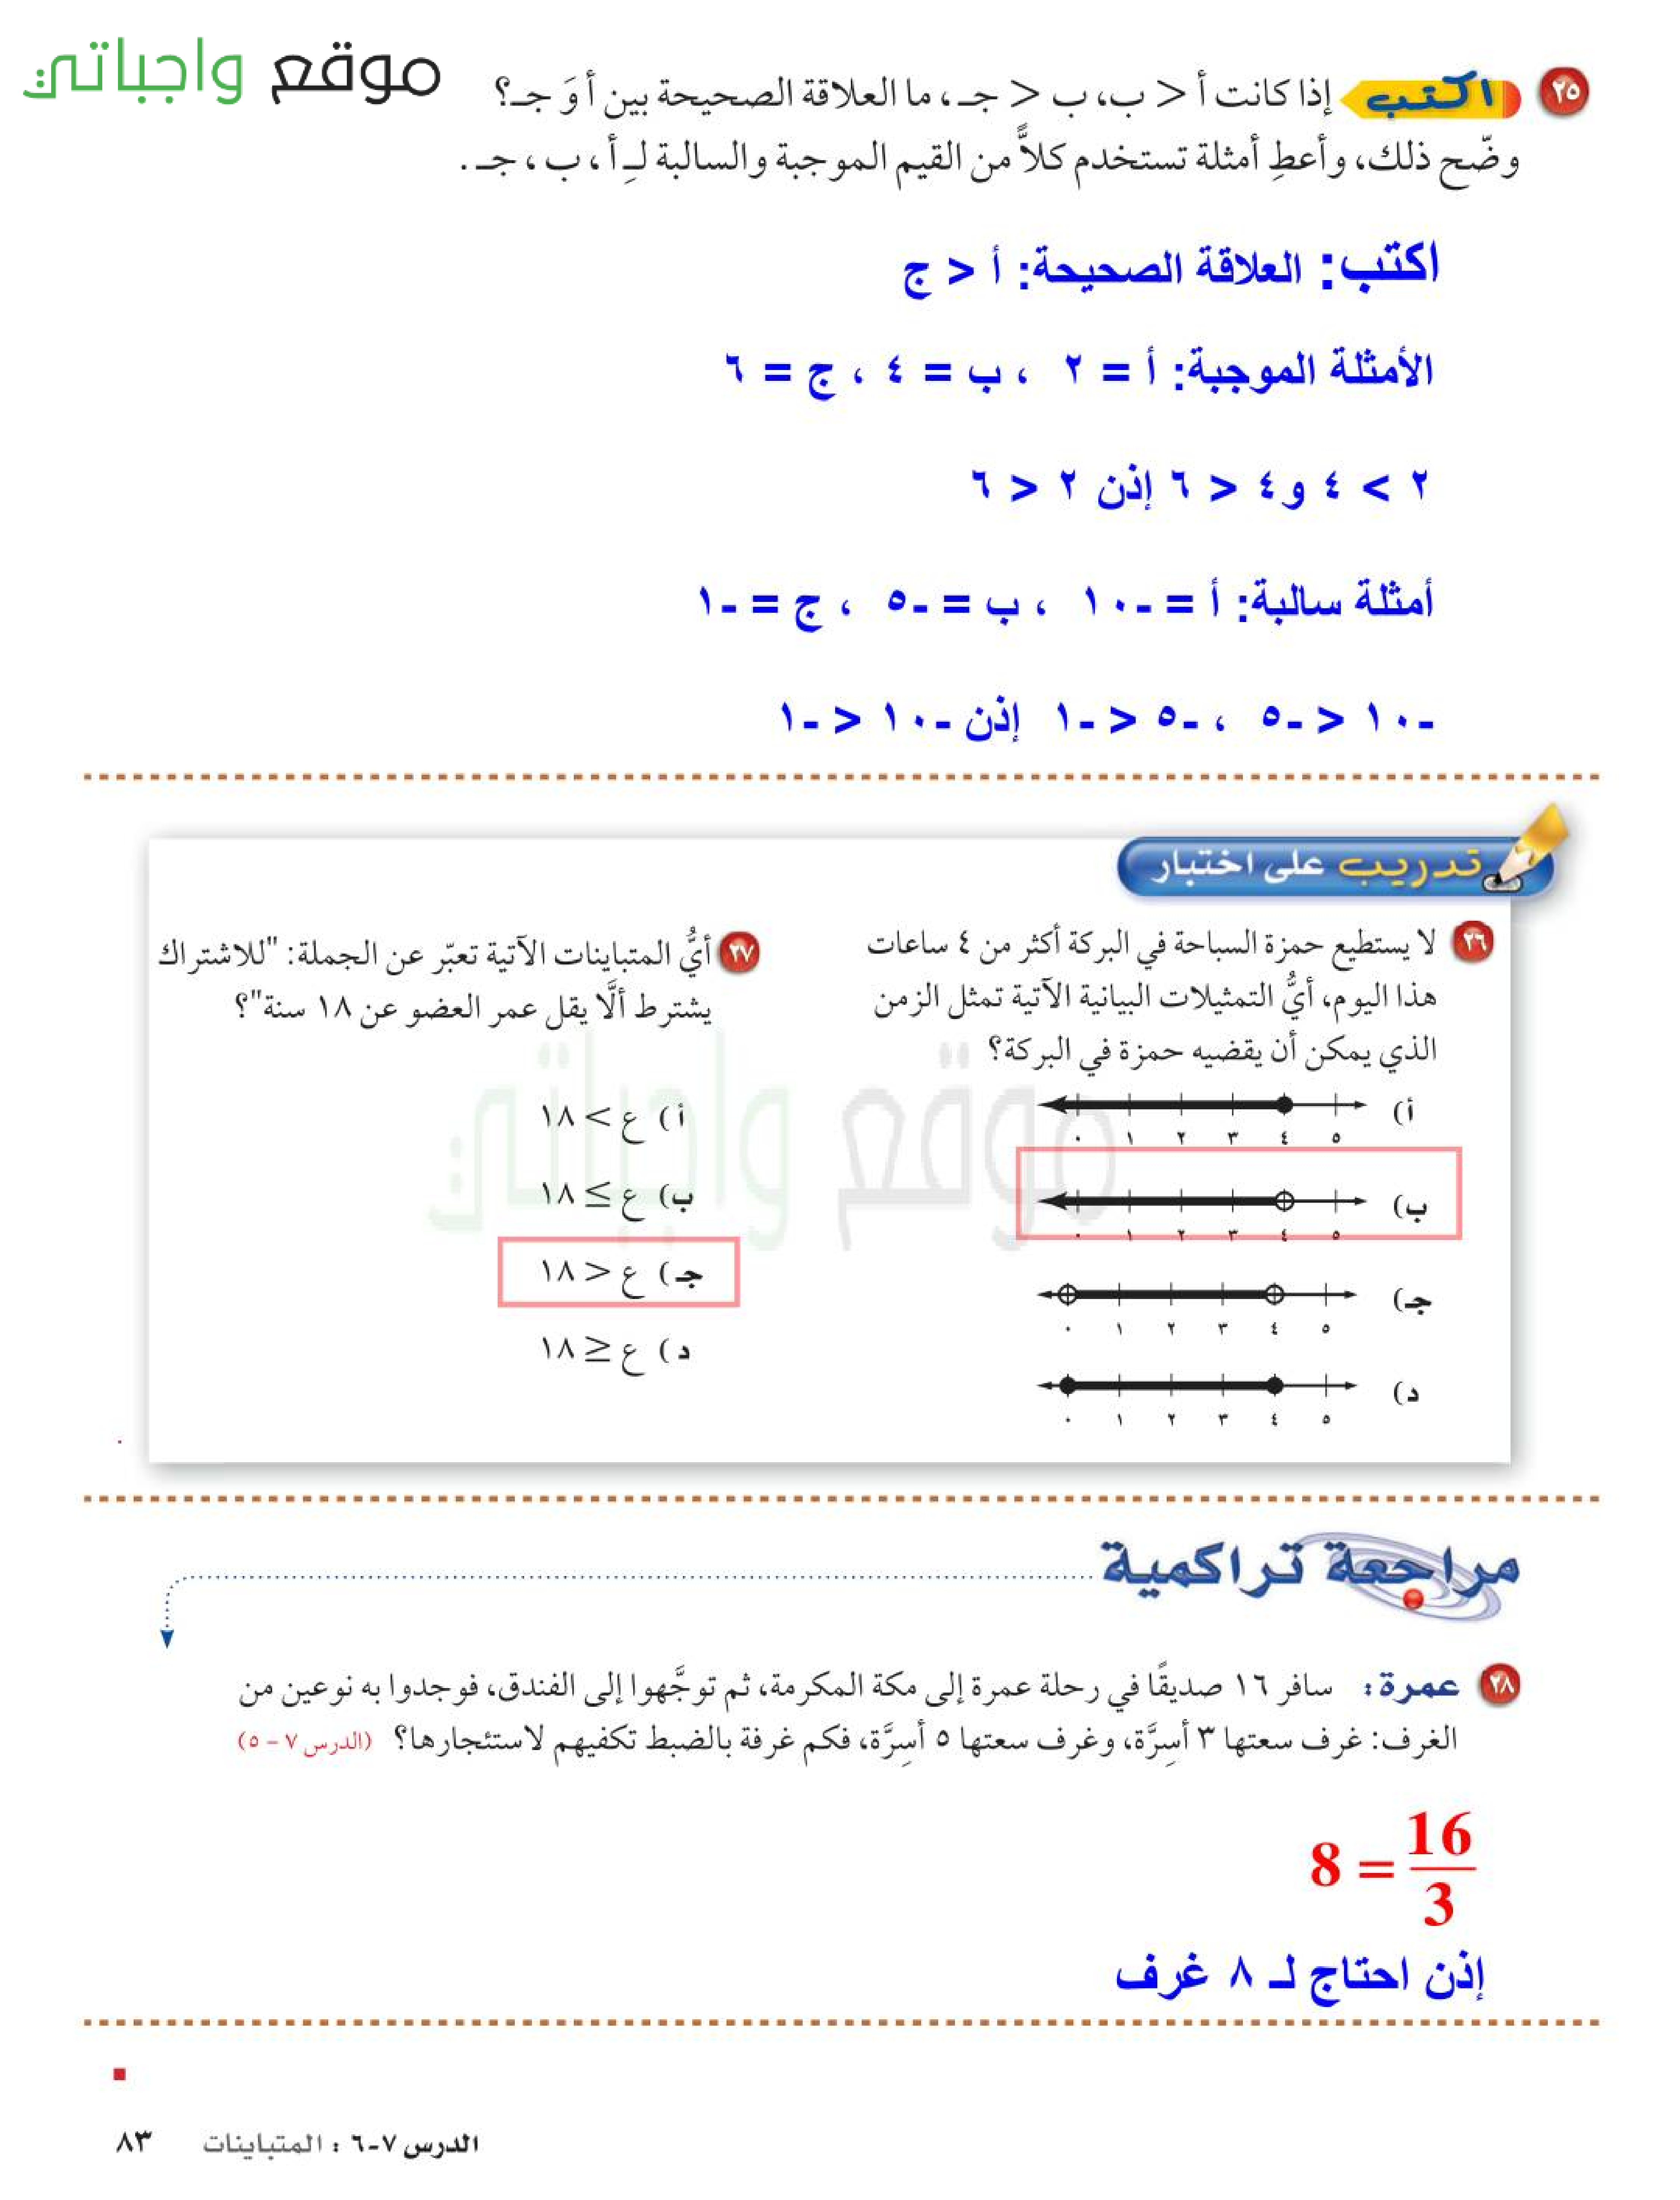 موقع واجباتي
٢٥ اكتب إذا كانت أ < ب، ب < جـ، ما العلاقة الصحيحة بين أ وَ جـ؟
وضّح ذلك، وأعطِ أمثلة تستخدم كلاًّ من القيم الموجبة والسالبة لـِ أ ، ب ، جـ .
اكتب: العلاقة الصحيحة: أ < ج
الأمثلة الموجبة: أ = ٢ ، ب = ٤ ، ج = ٦
٢ > ٤ و٤ < ٦ إذن ٢ < ٦
أمثلة سالبة: أ = -١٠ ، ب = -٥ ، ج = -١
-١٠ < -٥ ، -٥ < -١ إذن -١٠ < -١
تدريب على اختبار
٢٦ لا يستطيع حمزة السباحة في البركة أكثر من ٤ ساعات
هذا اليوم، أيُّ التمثيلات البيانية الآتية تمثل الزمن
الذي يمكن أن يقضيه حمزة في البركة؟
أ)
٠ ١ ٢ ٣ ٤ ٥
ب)
٠ ١ ٢ ٣ ٤ ٥
جـ)
٠ ١ ٢ ٣ ٤ ٥
د)
٠ ١ ٢ ٣ ٤ ٥
٢٧ أيُّ المتباينات الآتية تعبّر عن الجملة: "للاشتراك
يشترط ألَّا يقل عمر العضو عن ١٨ سنة"؟
أ) ع > ١٨
ب) ع ≥ ١٨
جـ) ع < ١٨
د) ع ≤ ١٨
موقع واجباتي
مراجعة تراكمية
٢٨ عمرة: سافر ١٦ صديقًا في رحلة عمرة إلى مكة المكرمة، ثم توجَّهوا إلى الفندق، فوجدوا به نوعين من
الغرف: غرف سعتها ٣ أسِرَّة، وغرف سعتها ٥ أسِرَّة، فكم غرفة بالضبط تكفيهم لاستئجارها؟ (الدرس ٧ - ٥)
8 = 16/3
إذن احتاج لـ ٨ غرف
الدرس ٧-٦ : المتباينات ٨٣